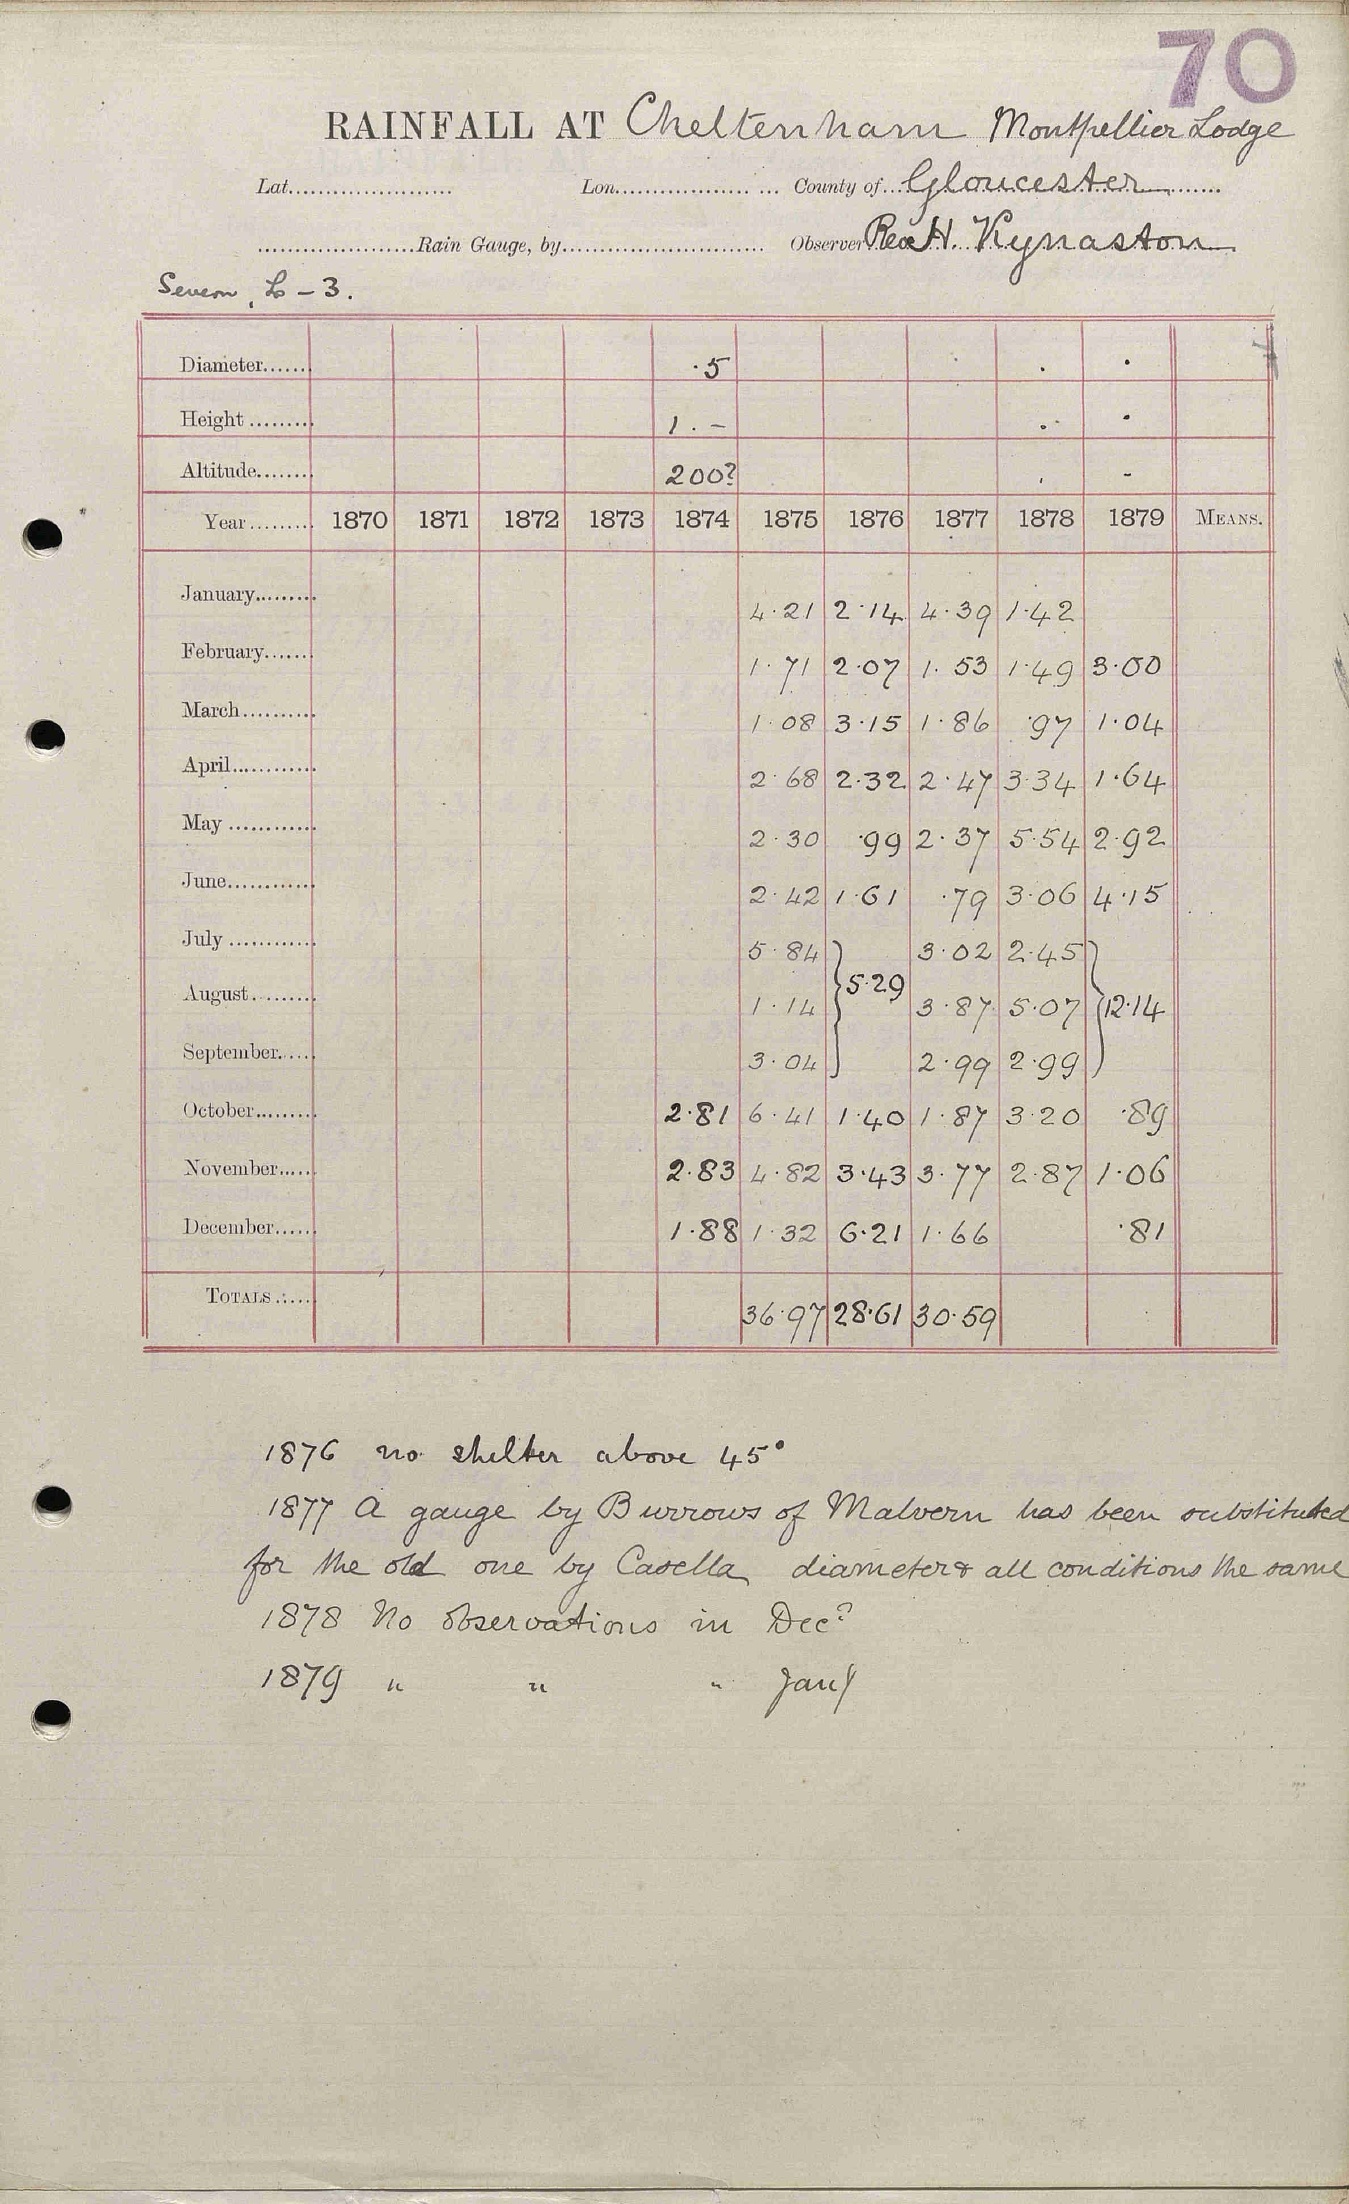 70
RAINFALL AT Cheltenham Montpellier Lodge
Lat...................... Lon.................. ... County of....Gloucester.......
.....................Rain Gauge, by........................... Observer Rev H. Kynaston
Severn, L - 3.
Diameter....... ·5 . ·
Height ......... 1 . - . ·
Altitude........ 200? . -
Year......... 1870 1871 1872 1873 1874 1875 1876 1877 1878 1879 MEANS.
January......... 4·21 2·14 4·39 1·42
February....... 1·71 2·07 1·53 1·49 3·00
March.......... 1·08 3·15 1·86 ·97 1·04
April............ 2·68 2·32 2·47 3·34 1·64
May ............ 2·30 ·99 2·37 5·54 2·92
June............ 2·42 1·61 ·79 3·06 4·15
July ............ 5·84 3·02 2·45
August......... 1·14 } 5·29 3·87 5·07 } 12·14
September..... 3·04 2·99 2·99
October......... 2·81 6·41 1·40 1·87 3·20 ·89
November...... 2·83 4·82 3·43 3·77 2·87 1·06
December...... 1·88 1·32 6·21 1·66 ·81
TOTALS ...... 36·97 28·61 30·59
1876 no shelter above 45°
1877 A gauge by Burrows of Malvern has been substituted
for the old one by Casella diameter & all conditions the same
1878 No observations in Decr
1879 " " " Jany